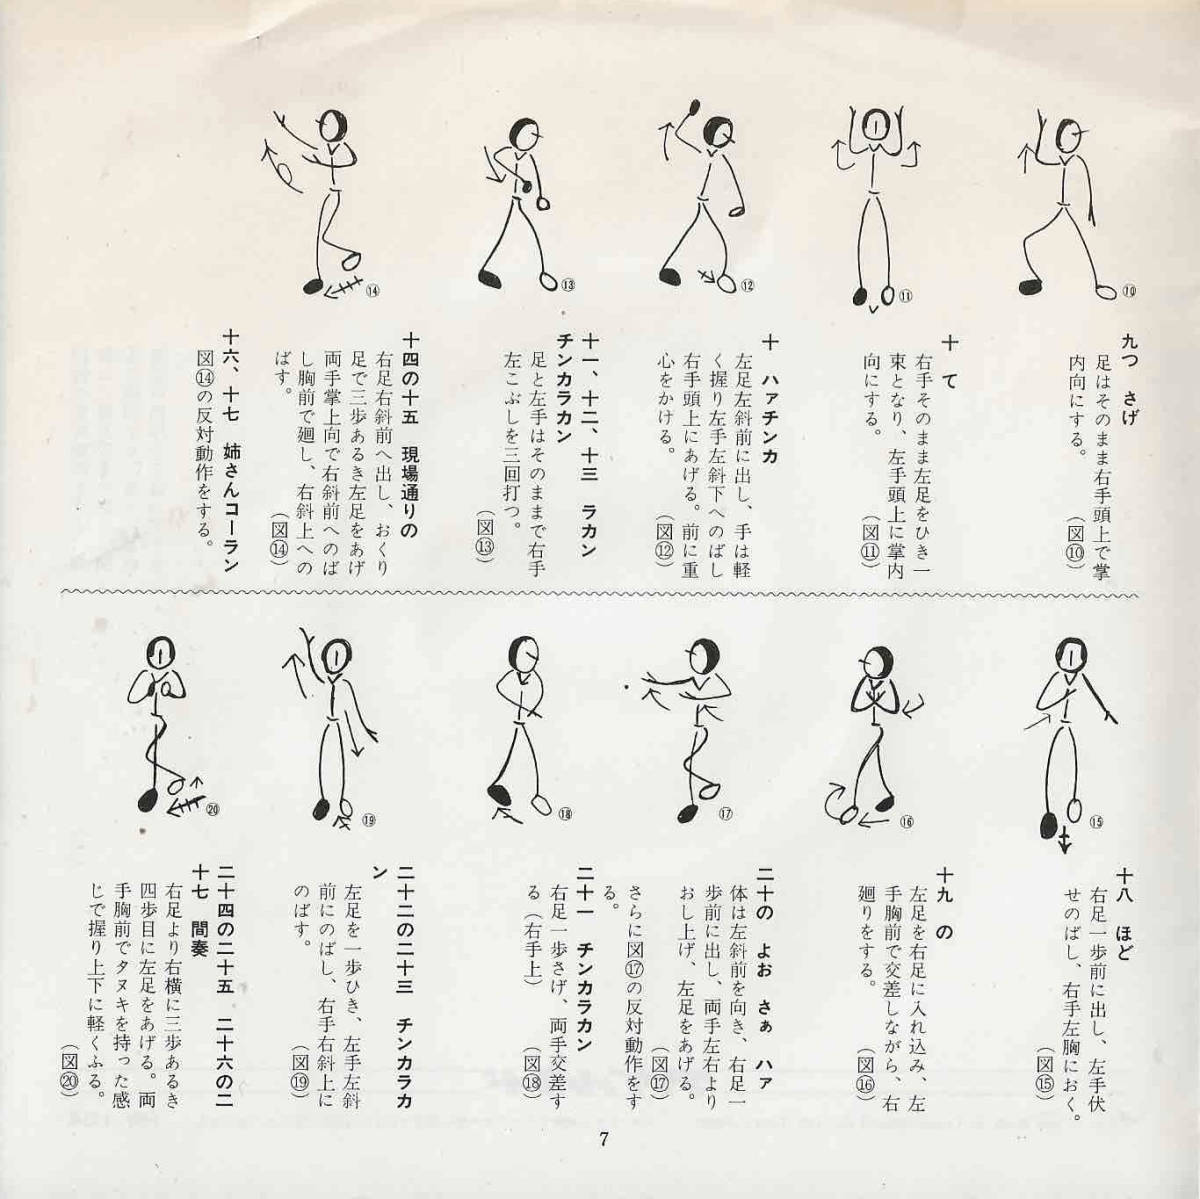 ⑩
⑪
⑫
⑬
⑭
九つ さげ
足はそのまま右手頭上で掌
内向にする。
(図⑩)
十 て
右手そのまま左足をひき一
束となり、左手頭上に掌内
向にする。
(図⑪)
十 ハァチンカ
左足左斜前に出し、手は軽
く握り左手左斜下へのばし
右手頭上にあげる。前に重
心をかける。
(図⑫)
十一、十二、十三 ラカン
チンカラカン
足と左手はそのままで右手
左こぶしを三回打つ。
(図⑬)
十四の十五 現場通りの
右足右斜前へ出し、おくり
足で三歩あるき左足をあげ
両手掌上向で右斜前へのば
し胸前で廻し、右斜上への
ばす。
(図⑭)
十六、十七 姉さんコーラン
図⑭の反対動作をする。
⑮
⑯
⑰
⑱
⑲
⑳
十八 ほど
右足一歩前に出し、左手伏
せのばし、右手左胸におく。
(図⑮)
十九 の
左足を右足に入れ込み、左
手胸前で交差しながら、右
廻りをする。
(図⑯)
二十の よお さぁ ハァ
体は左斜前を向き、右足一
歩前に出し、両手左右より
おし上げ、左足をあげる。
(図⑰)
さらに図⑰の反対動作をす
る。
二十一 チンカラカン
右足一歩さげ、両手交差す
る(右手上)
(図⑱)
二十二の二十三 チンカラカ
ン
左足を一歩ひき、左手左斜
前にのばし、右手右斜上に
のばす。
(図⑲)
二十四の二十五 二十六の二
十七 間奏
右足より右横に三歩あるき
四歩目に左足をあげる。両
手胸前でタヌキを持った感
じで握り上下に軽くふる。
(図⑳)
7